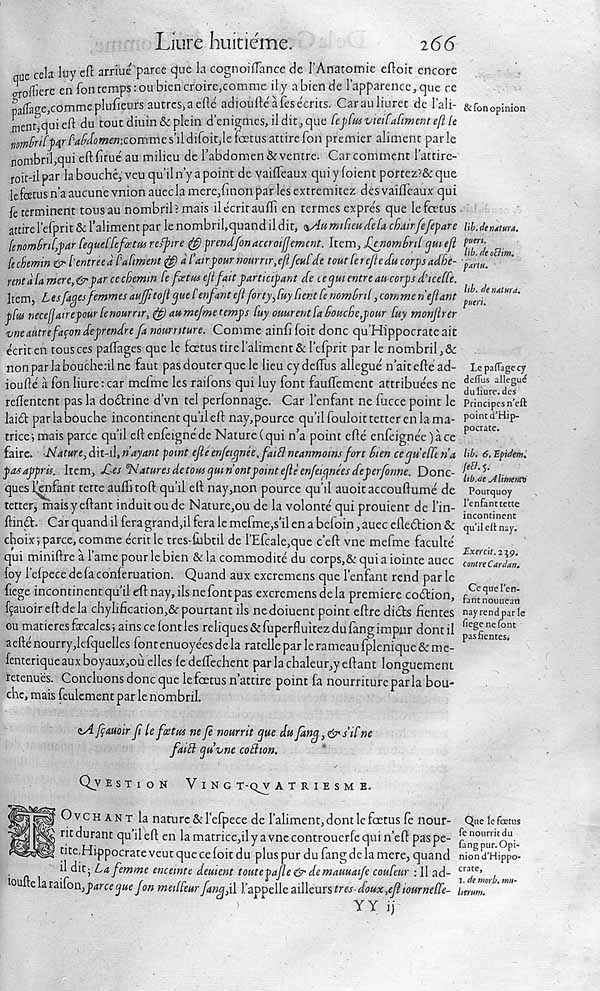 Liure huitiéme. 266
que cela luy est arriué parce que la cognoissance de l'Anatomie estoit encore
grossiere en son temps: ou bien croire, comme il y a bien de l'apparence, que ce
passage, comme plusieurs autres, a esté adiousté à ses écrits. Car au liuret de l'ali-
ment, qui est du tout diuin & plein d'enigmes, il dit, que le plus vieil aliment est le
nombril par l'abdomen; comme s'il disoit, le fœtus attire son premier aliment par le
nombril, qui est situé au milieu de l'abdomen & ventre. Car comment l'attire-
roit-il par la bouche, veu qu'il n'y a point de vaisseaux qui y soient portez? & que
le fœtus n'a aucune vnion auec la mere, sinon par les extremitez des vaisseaux qui
se terminent tous au nombril? mais il écrit aussi en termes exprés que le fœtus
attire l'esprit & l'aliment par le nombril, quand il dit, Au milieu de la chair se separe
le nombril, par lequel le fœtus respire & prend son accroissement. Item, Le nombril qui est
le chemin & l'entrée à l'aliment & à l'air pour nourrir, est seul de tout le reste du corps adhe-
rent à la mere, & par ce chemin le fœtus est fait participant de ce qui entre au corps d'icelle.
Item, Les sages femmes aussi tost que l'enfant est sorty, luy lient le nombril, comme n'estant
plus necessaire pour le nourrir, & au mesme temps luy ouurent la bouche, pour luy monstrer
vne autre façon de prendre sa nourriture. Comme ainsi soit donc qu'Hippocrate ait
écrit en tous ces passages que le fœtus tire l'aliment & l'esprit par le nombril, &
non par la bouche: il ne faut pas douter que le lieu cy dessus allegué n'ait esté ad-
iousté à son liure: car mesme les raisons qui luy sont faussement attribuées ne
ressentent pas la doctrine d'vn tel personnage. Car l'enfant ne succe point le
laict par la bouche incontinent qu'il est nay, pource qu'il souloit tetter en la ma-
trice; mais parce qu'il est enseigné de Nature (qui n'a point esté enseignée) à ce
faire. Nature, dit-il, n'ayant point esté enseignée, faict neanmoins fort bien ce qu'elle n'a
pas appris. Item, Les Natures de tous qui n'ont point esté enseignées de personne. Donc-
ques l'enfant tette aussi tost qu'il est nay, non pource qu'il auoit accoustumé de
tetter, mais y estant induit ou de Nature, ou de la volonté qui prouient de l'in-
stinct. Car quand il sera grand, il fera le mesme, s'il en a besoin, auec eslection &
choix; parce, comme écrit le tres-subtil de l'Escale, que c'est vne mesme faculté
qui ministre à l'ame pour le bien & la commodité du corps, & qui a iointe auec
soy l'espece de sa conseruation. Quand aux excremens que l'enfant rend par le
siege incontinent qu'il est nay, ils ne sont pas excremens de la premiere coction,
sçauoir est de la chylification, & pourtant ils ne doiuent point estre dicts fientes
ou matieres fæcales; ains ce sont les reliques & superfluitez du sang impur dont il
a esté nourry, lesquelles sont enuoyées de la ratelle par le rameau splenique & me-
senterique aux boyaux, où elles se dessechent par la chaleur, y estant longuement
retenuës. Concluons donc que le fœtus n'attire point sa nourriture par la bou-
che, mais seulement par le nombril.
& son opinion
lib. de natura.
pueri.
lib. de octim.
partu.
lib. de natura.
pueri.
Le passage cy
dessus allegué
du liure. des
Principes n'est
point d'Hip-
pocrate.
lib. 6. Epidem.
sect. 5.
lib. de Alimento
Pourquoy
l'enfant tette
incontinent
qu'il est nay.
Exercit. 239.
contre Cardan.
Ce que l'en-
fant nouueau
nay rend par le
siege ne sont
pas fientes.
A sçauoir si le fœtus ne se nourrit que du sang, & s'il ne
faict qu'vne coction.
QVESTION VINGT-QVATRIESME.
TOVCHANT la nature & l'espece de l'aliment, dont le fœtus se nour-
rit durant qu'il est en la matrice, il y a vne controuerse qui n'est pas pe-
tite. Hippocrate veut que ce soit du plus pur du sang de la mere, quand
il dit; La femme enceinte deuient toute pasle & de mauuaise couleur: Il ad-
iouste la raison, parce que son meilleur sang, il l'appelle ailleurs tres-doux, est iournelle-
Que le fœtus
se nourrit du
sang pur. Opi-
nion d'Hippo-
crate,
1. de morb. mu-
lierum.
YY ij